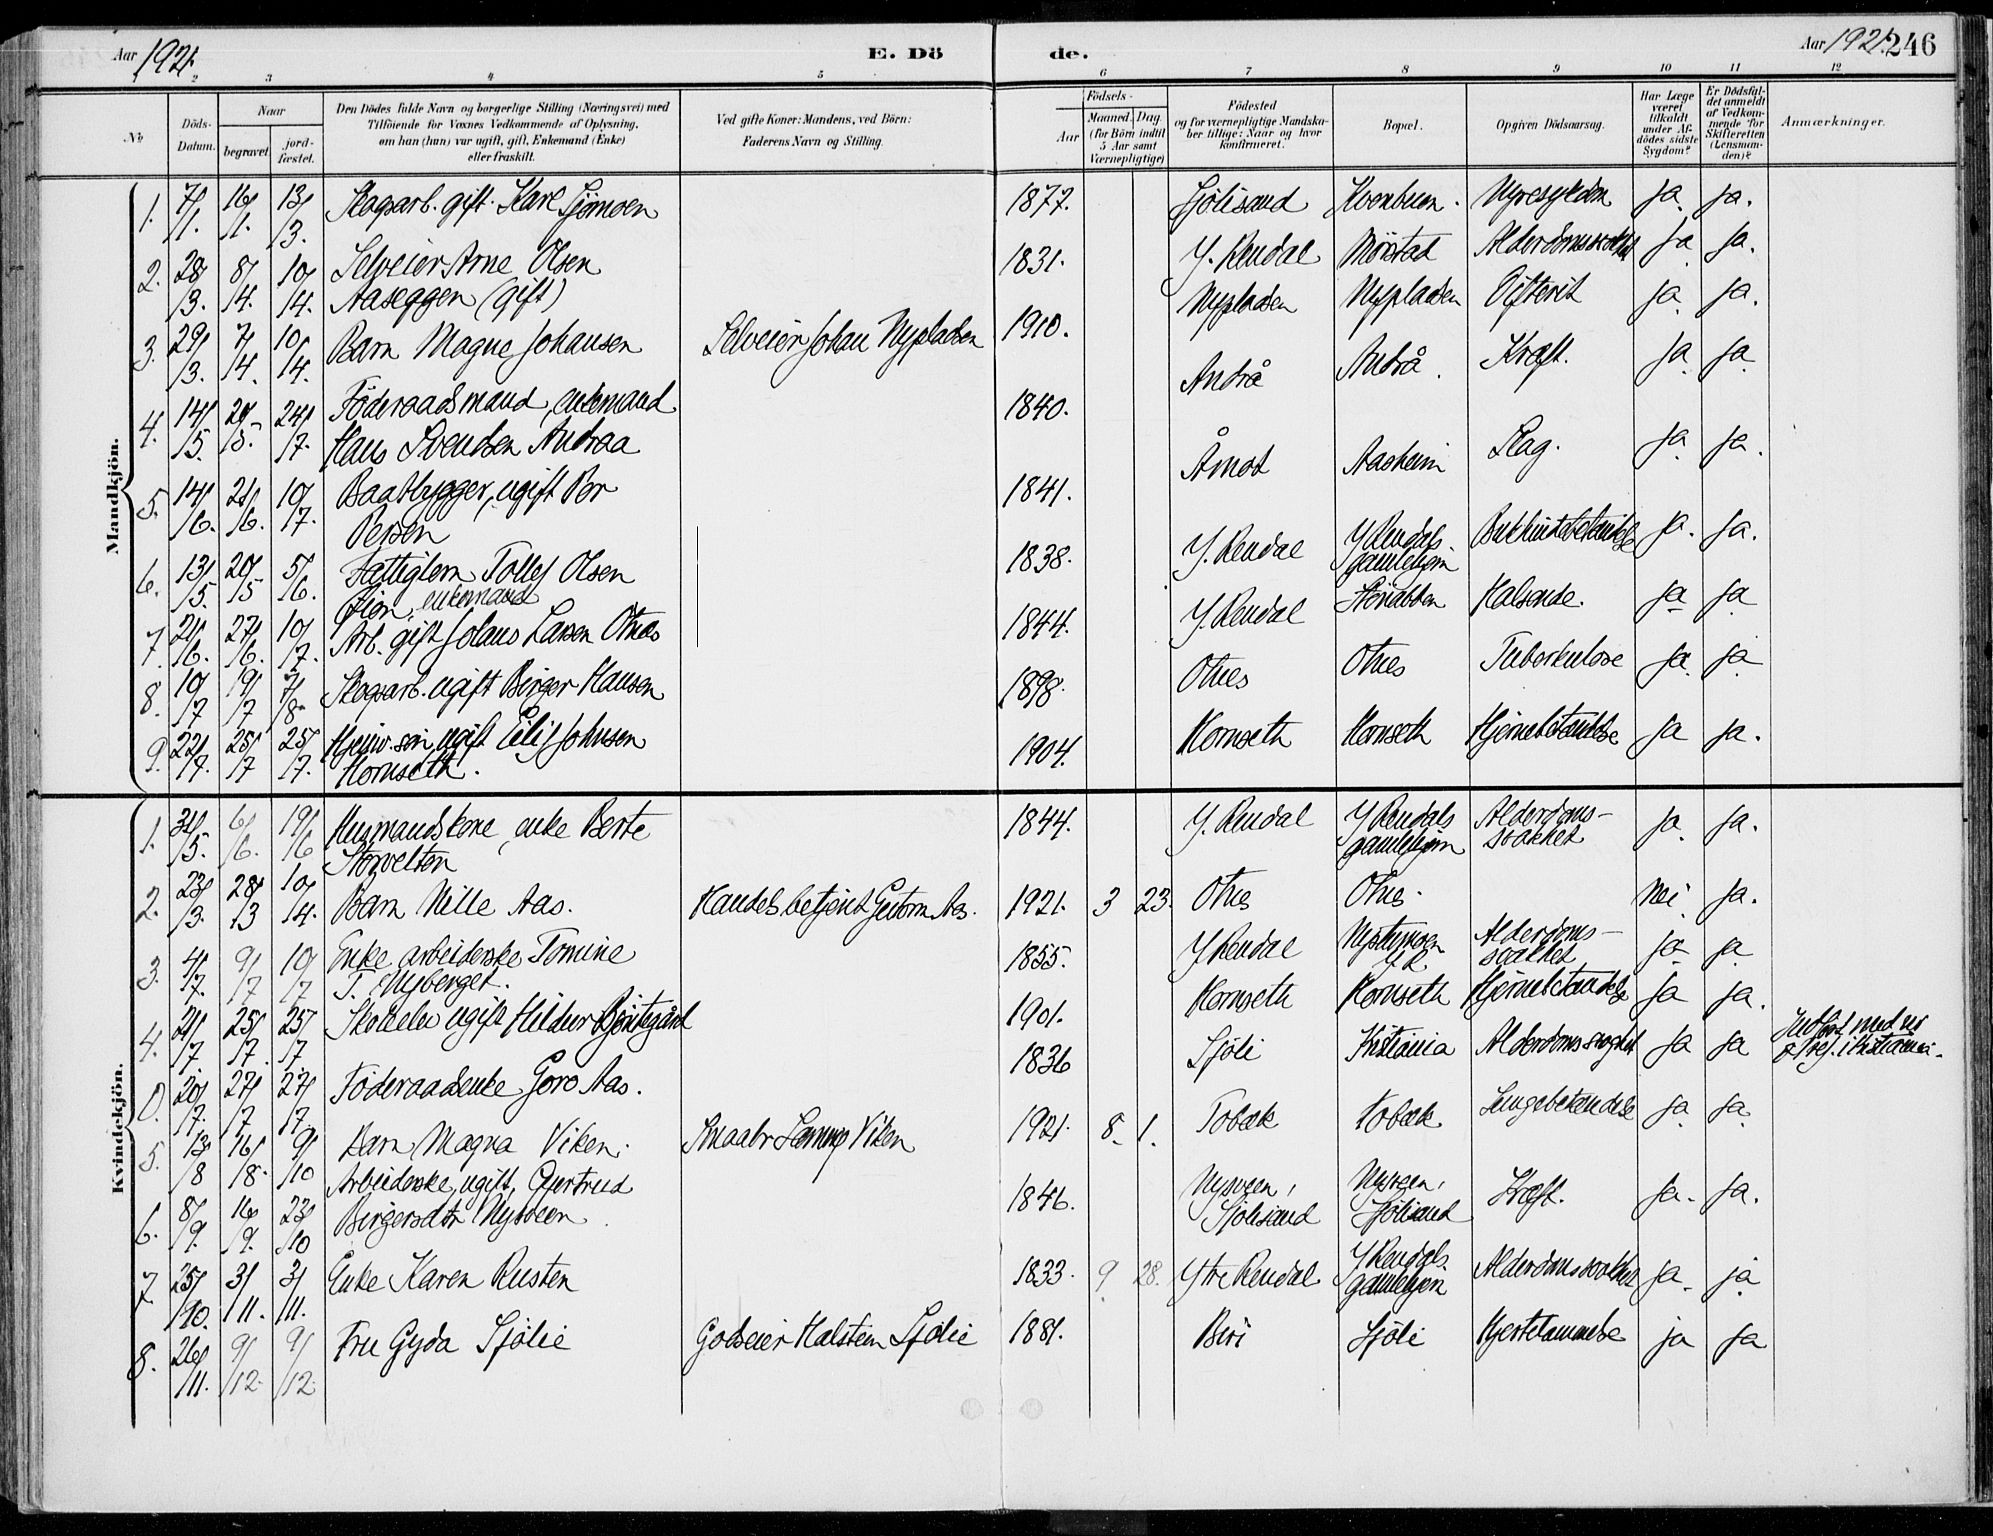 Aar 1921.
E. Dö de.
Aar 1921. 246
2 3 4 5 6 7 8 9 10 11 12
No
Döds-Datum.
Naar
begravet.
jord-fæstet.
Den Dödes fulde Navn og borgerlige Stilling (Næringsvei) med
Tilföiende for Voxnes Vedkommende af Oplysning,
om han (hun) var ugift, gift, Enkemand (Enke)
eller fraskilt.
Ved gifte Koner: Mandens, ved Börn:
Faderens Navn og Stilling.
Födsels-
Aar
Maaned. Dag.
(for Börn indtil
5 Aar samt
Værnepligtige)
Födested
og for værnepligtige Mandska-
ber tillige: Naar og hvor
konfirmeret.
Bopæl.
Opgiven Dödsaarsag.
Har Læge
været
tilkaldt
under Af-
dödes sidste
Sygdom?
Er Dödsfal-
det anmeldt
af Vedkom-
mende for
Skifteretten
(Lensman-
den)?
Anmærkninger.
Mandkjön.
1. 7/1. 16/1. 13/3. Skogsarb. gift Karl Sjømoen 1877. Sjølisand Kvenbuen. Nyresykdom ja. ja.
2. 28/3. 8/4. 10/4. Selveier Arne Olsen
Aaseggen (gift) 1831. Y. Rendal Mörstad Alderdomssvakhet ja. ja.
3. 29/3. 7/4. 10/4. Barn Magne Johansen Selveier Johan Nypladsen 1910. Nypladsen Nypladsen ja. ja.
4. 14/5. 20/5. 24/7. Föderaadsmand, enkemand
Hans Svendsen Andraa 1840. Andrå Andrå. Kræft. ja. ja.
5. 14/6. 21/6. 10/7. Baatbygger, ugift Per
Persen 1841. Åmot Aasheim Slag. ja. ja.
6. 13/5. 20/5 5/6. Fattiglem Tollef Olsen
enkemand 1838. Y. Rendal Y Rendals
gamlehjem ja. ja.
7. 21/6. 27/6. 10/7. Arb. gift Johans Larsen Otnes 1844. Y. Rendal ja ja
8. 10/7 19/7 7/8. Skogsarb. ugift Birger Hansen 1898. Otnes Otnes Tuberkulose ja. ja.
9. 22/7. 25/7 25/7. ugift Eilif Johnsen
Hornseth. 1904. Hornseth Hornseth Hjernebetændelse ja ja.
Kvindekjön.
1. 31/5. 6/6. 19/6 Husmandskone, enke Berte
Storvelten 1844. Y. Rendal Y Rendals
gamlehjem Alderdoms-
svakhet ja. ja.
2. 23/3. 28/3 10/4. Barn Nille Aas. Handelsbetjent Gutorm Aas. 1921. 3 23. Otnes Otnes. Nei. ja.
3. 4/7. 9/7 10/7 Enke arbeiderske Tomine
T. Nyberget. 1855. Y Rendal Nystumoen
Y R Alderdoms-
svakhet ja. ja.
4. 21/7 25/7. 25/7. ugift Hildur Berntegård 1901. Hornseth Hornseth Hjernebetændelse ja ja.
0. 20/7. 27/7 27/7. Föderaadsenke Goro Aas. 1836 Sjöli Kristiania Alderdomssvaghet ja ja Indfört med nr
i Kristiania.
5. 13/8 16/8. 9/10 Barn Magna Viken. Smaabr 	Viken 1921. 8. 1. Tobæk Tobæk Lungebetændelse ja. ja.
6. 8/9. 16/9. 23/10 Arbeiderske, ugift, Gjertrud
Birgersdtr Nysveen 1846. Nysveen,
Sjölisand Nysveen,
Sjölisand Kræft. ja. ja.
7. 25/10. 3/11. 3/11. Enke Karen Rusten 1833. 9. 28. Ytre Rendal Y Rendals
gamlehjem Alderdomssvakhet ja. ja.
8. 26/11. 9/12. 9/12. Fru Gyda Sjölie Godseier Halsten Sjölie 1881. Biri Sjöli Hjertelammelse ja ja